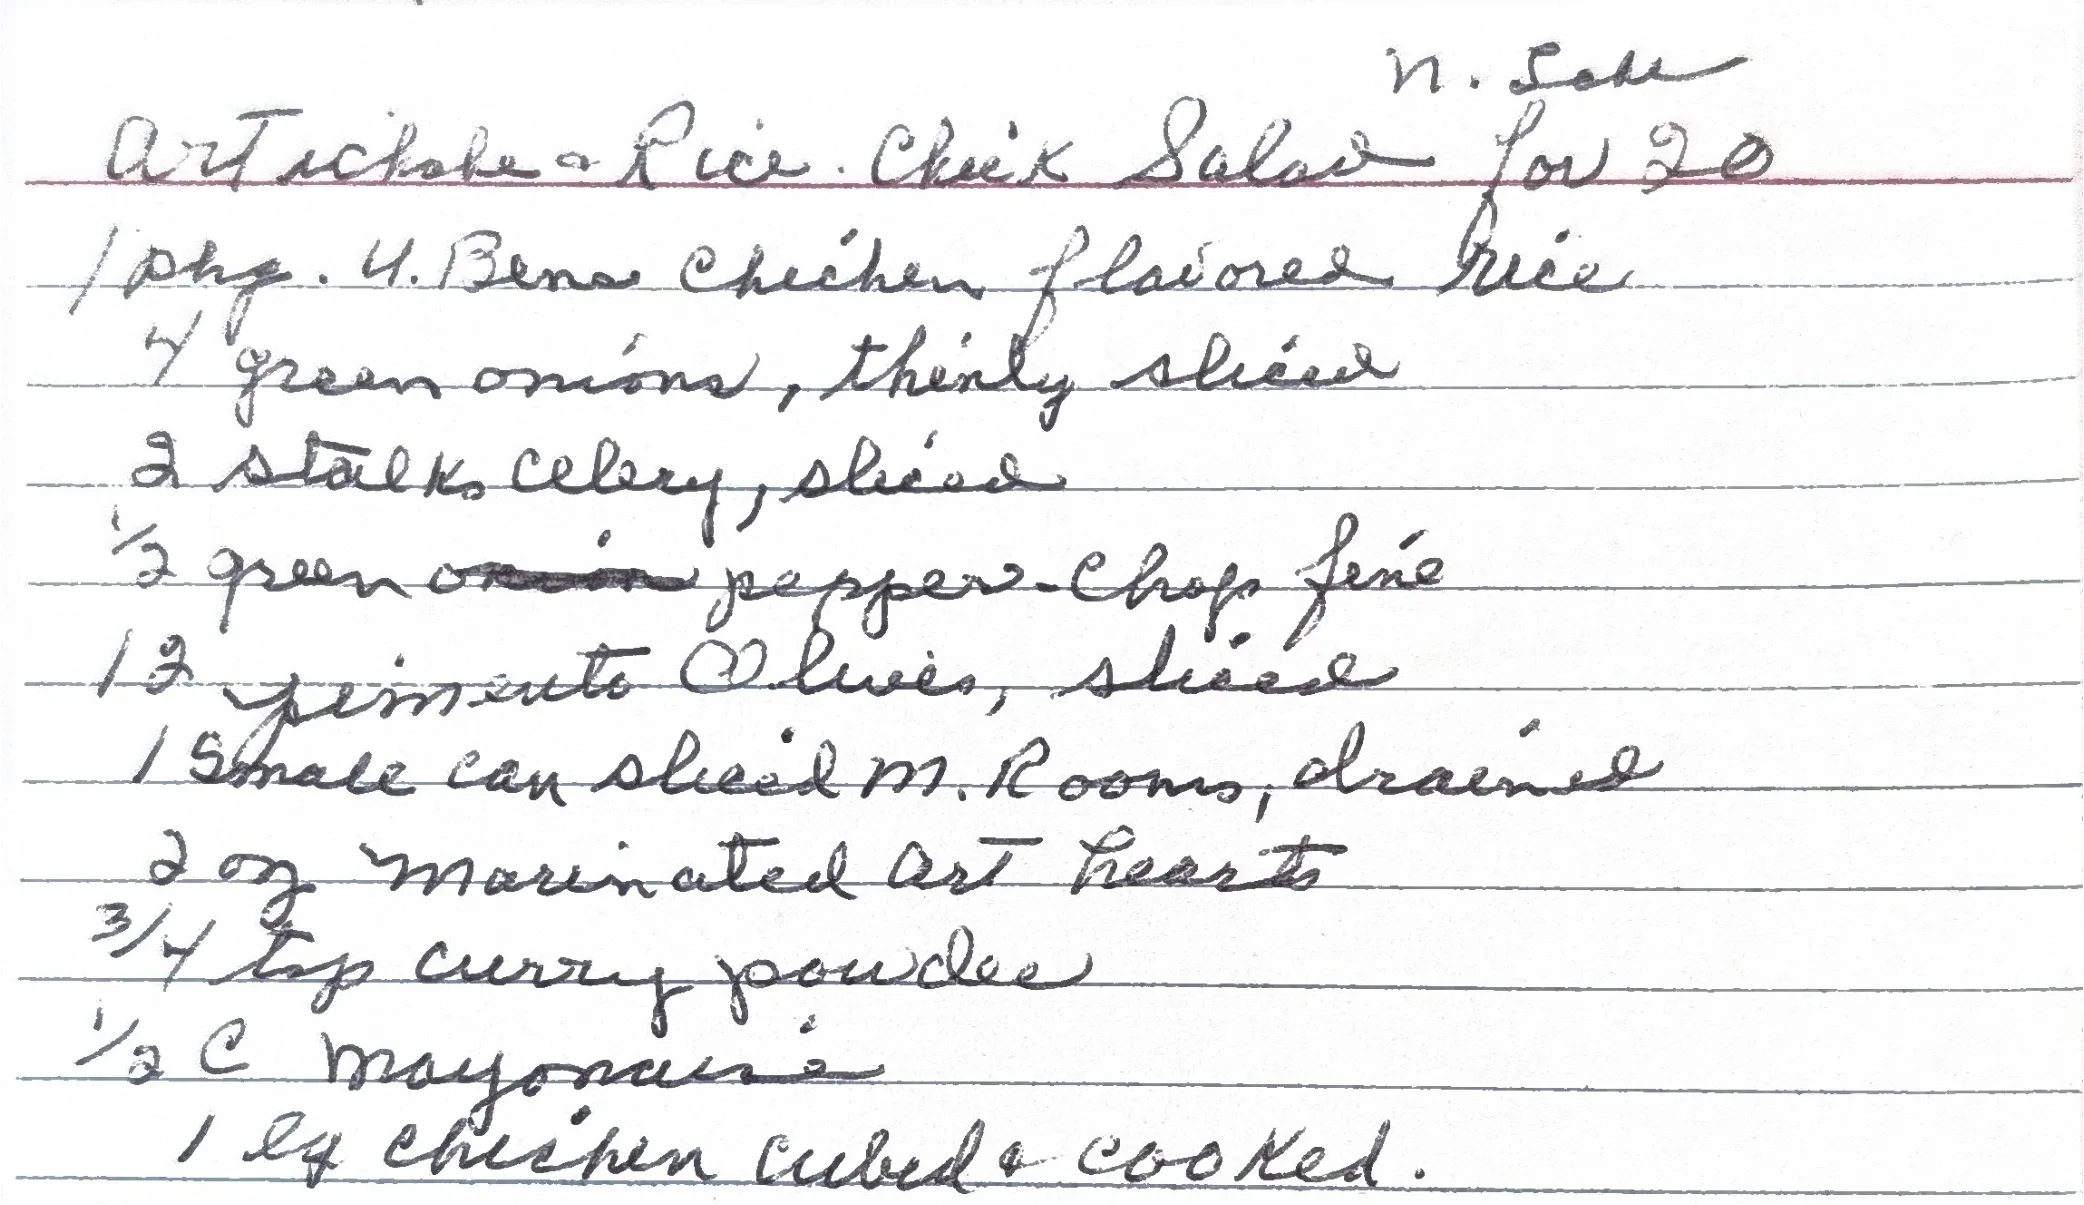 N.
Artichoke & Rice. Chick Salad for 20
1 pkg. U. Bens Chicken flavored rice
4 green onions, thinly sliced
2 stalks celery, sliced
1/2 green onion pepper - Chop fine
12 pimento Olives, sliced
1 Small can sliced M. Rooms, drained
2 oz marinated art hearts
3/4 tsp curry powder
1/2 C Mayonaise
1 lg chicken cubed & cooked.